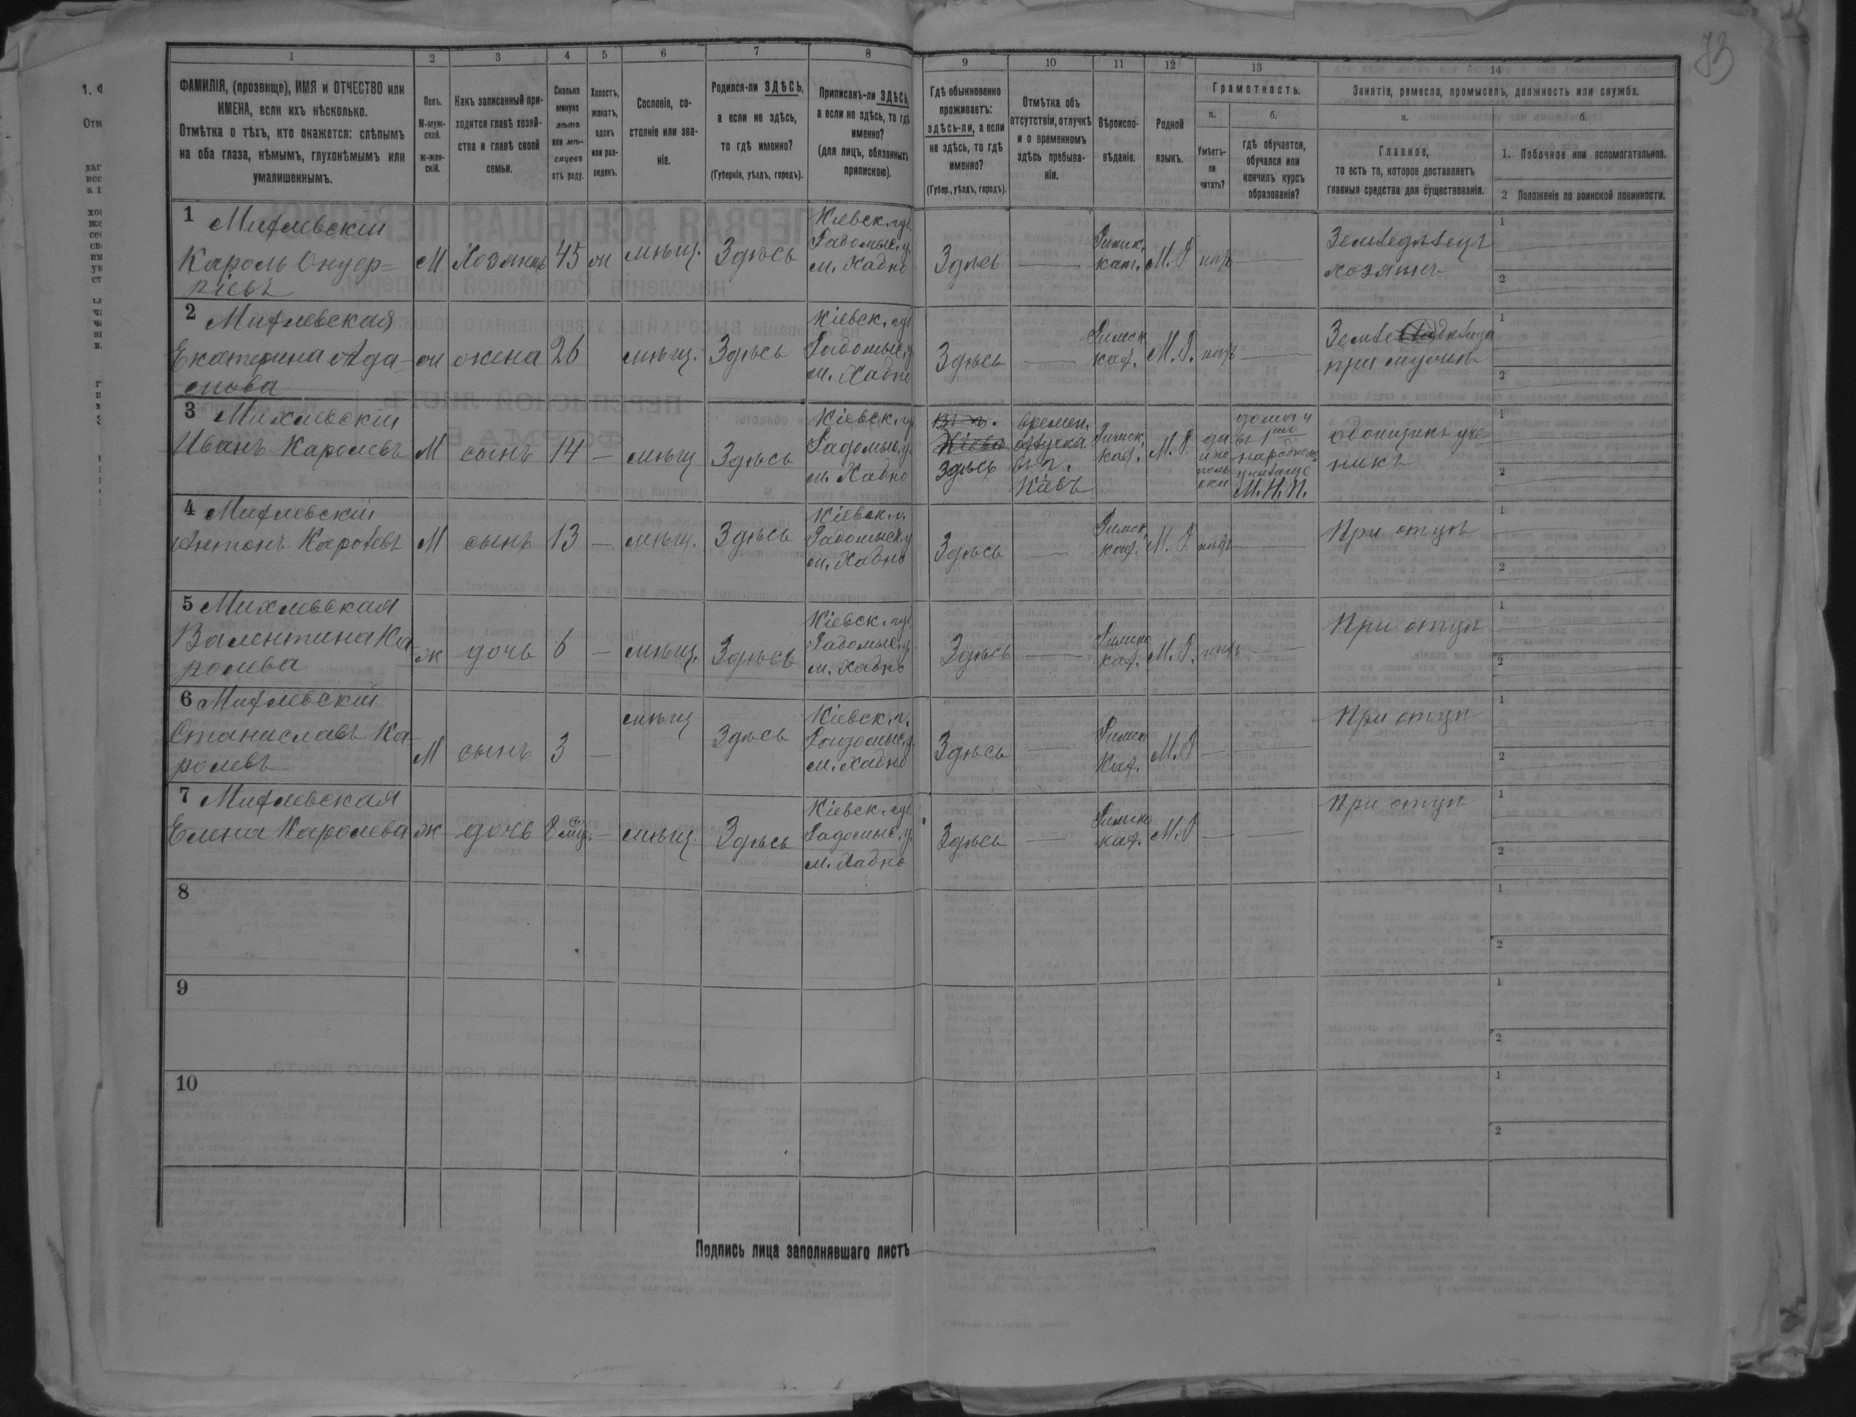 73
1 2 3 4 5 6 7 8 9 10 11 12 13 14
ФАМИЛІЯ, (прозвище), ИМЯ и ОТЧЕСТВО или
ИМЕНА, если ихъ нѣсколько.
Отмѣтка о тѣхъ, кто окажется: слѣпымъ
на оба глаза, нѣмымъ, глухонѣмымъ или
умалишеннымъ.
Полъ.
М-муж-
ской.
ж-жен-
скій.
Какъ записанный при-
ходится главѣ хозяй-
ства и главѣ своей
семьи.
Сколько
минуло
лѣтъ
или мѣ-
сяцевъ
отъ роду.
Холостъ,
женатъ,
вдовъ
или раз-
веденъ.
Сословіе, со-
стояніе или зва-
ніе.
Родился-ли ЗДѢСЬ,
а если не здѣсь,
то гдѣ именно?
(Губернія, уѣздъ, городъ).
Приписанъ-ли ЗДѢСЬ,
а если не здѣсь, то гдѣ
именно?
(для лицъ, обязанныхъ
припискою).
Гдѣ обыкновенно
проживаетъ:
здѣсь-ли, а если
не здѣсь, то гдѣ
именно?
(Губер., уѣздъ, городъ).
Отмѣтка объ
отсутствіи, отлучкѣ
и о временномъ
здѣсь пребыва-
ніи.
Вѣроиспо-
вѣданіе.
Родной
языкъ.
Грамотность.
а.
Умѣетъ-
ли
читать?
б.
гдѣ обучается,
обучался или
кончилъ курсъ
образованія?
Занятія, ремесло, промыселъ, должность или служба.
а.
Главное,
то есть то, которое доставляетъ
главныя средства для существованія.
б.
1. Побочное или вспомогательное.
2 Положеніе по воинской повинности.
1 Михлевскій
Кароль
М Хозяинъ 45 мѣщ. Здѣсь
Кіевск. губ.
Радомыс. у.
м. Хабно
Здѣсь —
Римск.
кат.
М. Р. нѣтъ —
Земледѣлецъ
хозяинъ
1
2
2 Михлевская
Екатерина Ада-
мова
жена 26 мѣщ. Здѣсь
Кіевск. губ.
Радомыс. у.
м. Хабно
Здѣсь —
Римск.
кат.
М. Р. нѣтъ —
при мужѣ
1
2
3 Михлевскій
Иванъ Каролевъ
М сынъ 14 — мѣщ Здѣсь
Кіевск. губ.
Радомыс. у.
м. Хабно
Здѣсь
времен.
отлучка
въ г.
Кіевъ
Римск.
кат.
М. Р.
да
народном
училище
М. Н. П.
уче-
никъ
1
2
4 Михлевскій
Антонъ Каролевъ
М сынъ 13 — мѣщ. Здѣсь
Кіевск. г.
Радомыс. у.
м. Хабно
Здѣсь —
Римск.
кат.
М. Р. нѣтъ —
При отцѣ
1
2
5 Михлевская
Валентина Ка
ролева
ж дочь 6 — мѣщ. Здѣсь
Кіевск. губ.
Радомыс. у.
м. Хабно
Здѣсь —
Римско
кат.
М. Р. нѣтъ —
При отцѣ
1
2
6 Михлевскій
Станиславъ Ка-
ролевъ
М сынъ 3 — мѣщ Здѣсь
Кіевск. г.
Радомыс. у.
м. Хабно
Здѣсь —
Римско
Кат.
М. Р — —
При отцѣ
1
2
7 Михлевская
Елена Каролева
ж дочь 8 — мѣщ. Здѣсь
Кіевск. губ.
Радомыс. у.
м. Хабно
Здѣсь —
Римско
кат.
М. Р — —
При отцѣ
1
2
8
1
2
9
1
2
10
1
2
Подпись лица заполнявшаго листъ